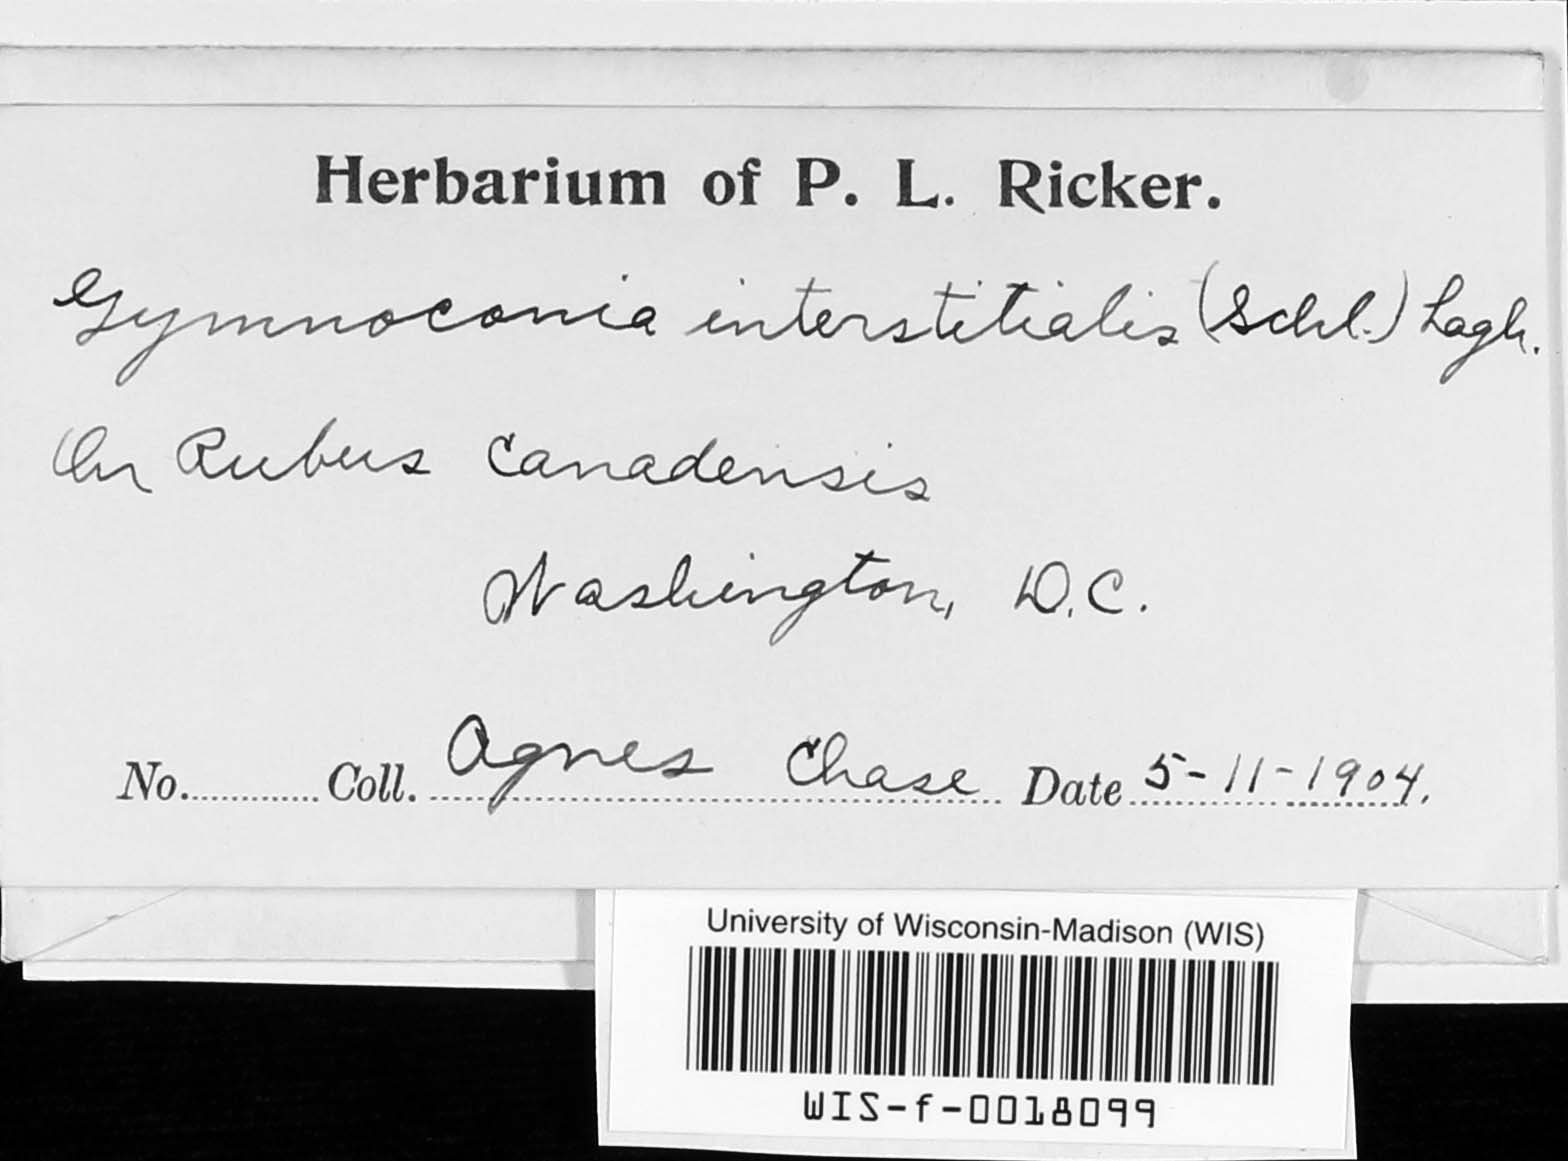 Herbarium of P. L. Ricker.
Gymnoconia interstitialis (Schl.) Lagh.
On Rubus Canadensis
Washington, D.C.
No. Coll. Agnes Chase Date 5-11-1904.
University of Wisconsin-Madison (WIS)
WIS-f-0018099